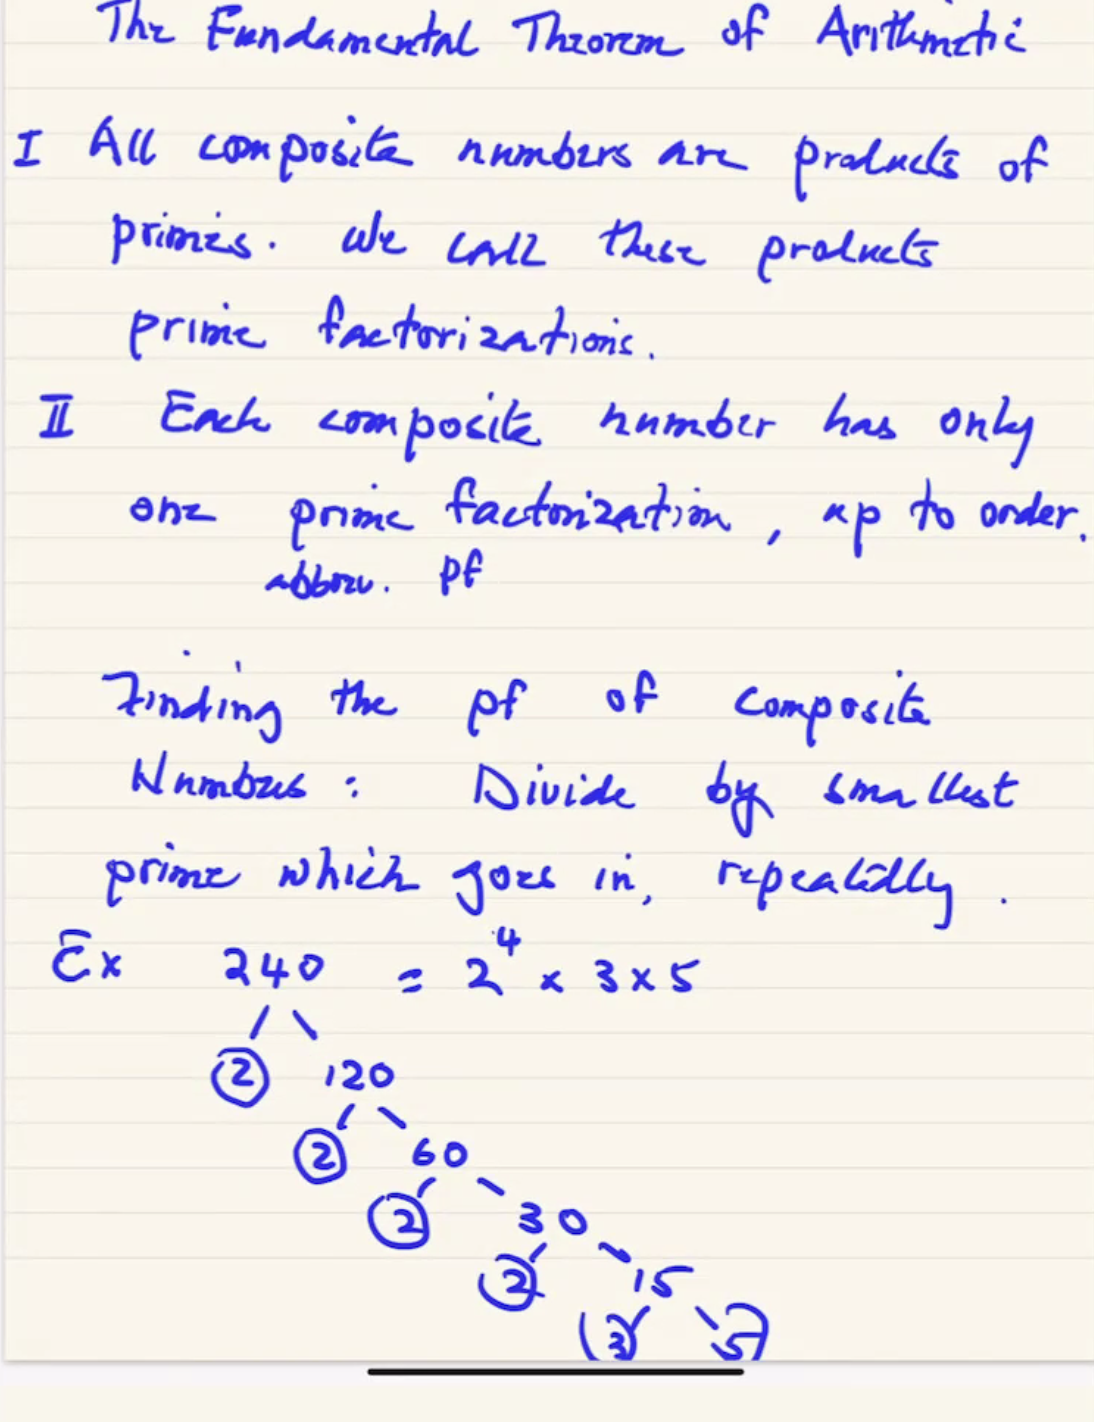 The Fundamental Theorem of Arithmetic
I All composite numbers are products of
primes. We call these products
prime factorizations.
II Each composite number has only
one prime factorization, up to order.
abbrev. pf
Finding the pf of composite
Numbers: Divide by smallest
prime which goes in, repeatedly.
Ex 240 = 2⁴ × 3 × 5
2 120
2 60
2 30
2 15
3 5